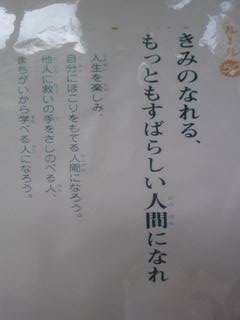 ルール
きみのなれる、
もっともすばらしい人間になれ
人生を楽しみ、
自分にほこりをもてる人間になろう。
他人に救いの手をさしのべる人、
まちがいから学べる人になろう。